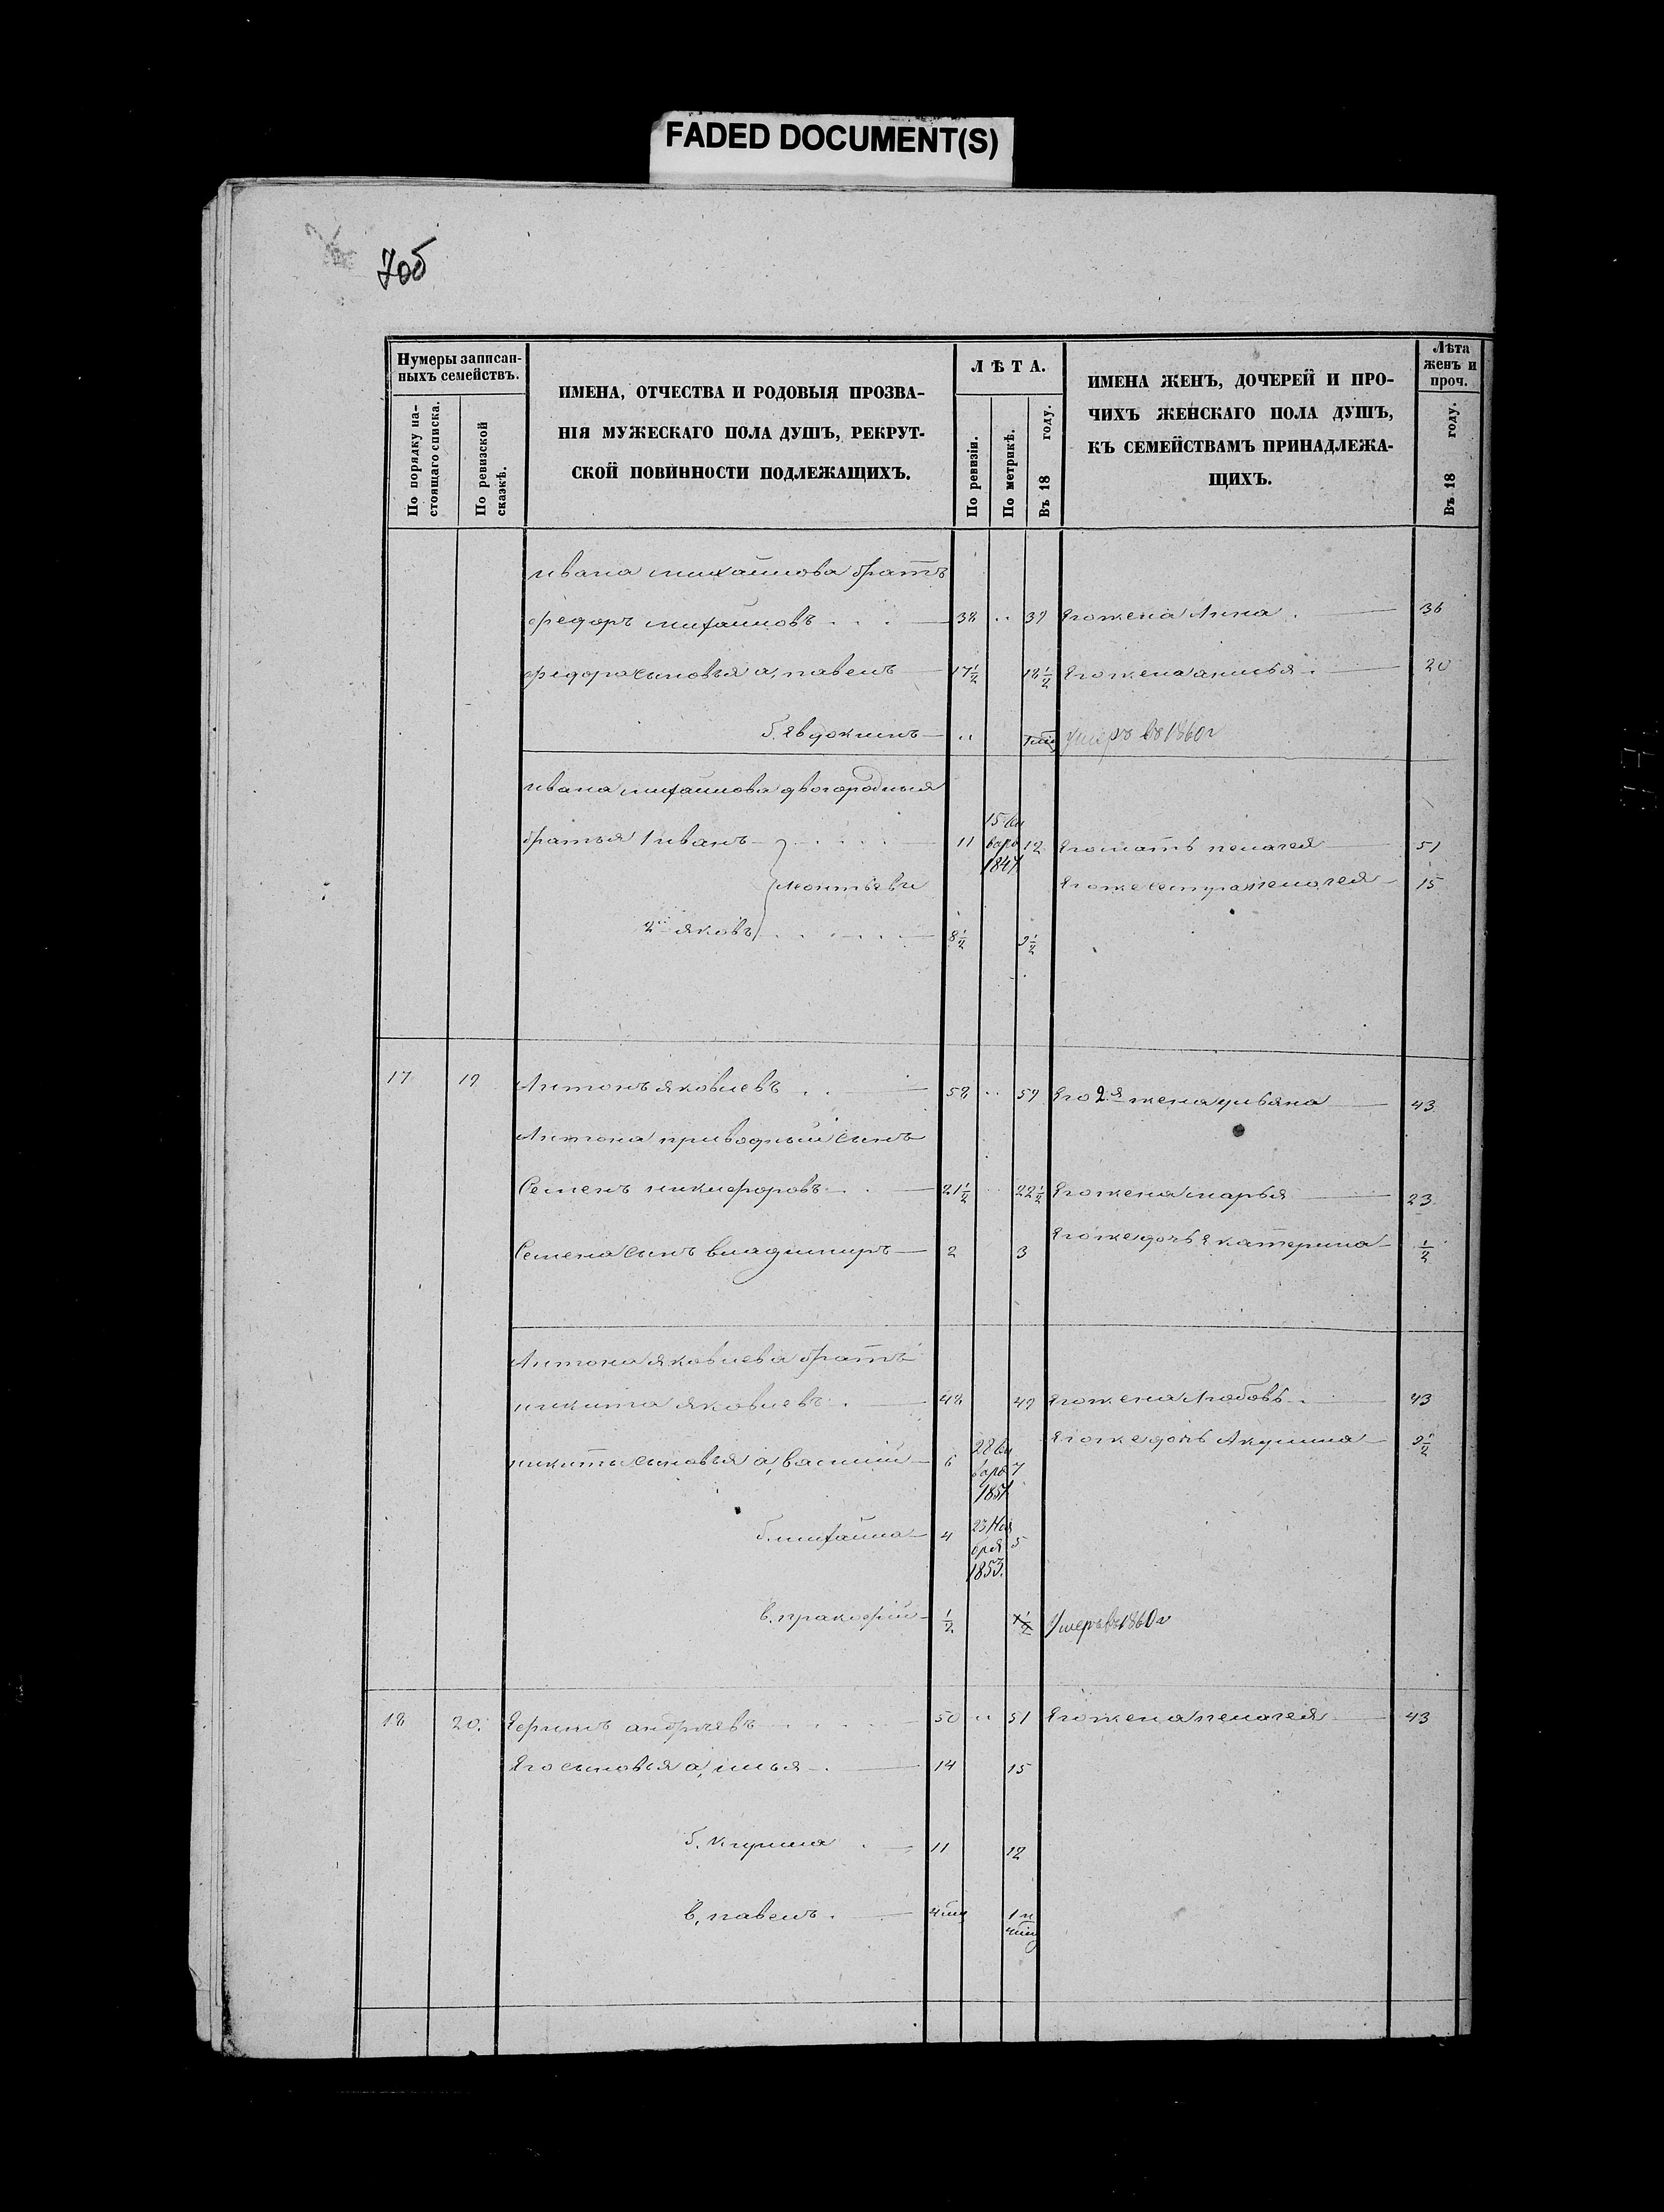 FADED DOCUMENT(S)
70б
Нумеры записан-
ныхъ семействъ.
По порядку на-
стоящаго списка.
По ревизской
сказкѣ.
ИМЕНА, ОТЧЕСТВА И РОДОВЫЯ ПРОЗВА-
НІЯ МУЖЕСКАГО ПОЛА ДУШЪ, РЕКРУТ-
СКОЙ ПОВИННОСТИ ПОДЛЕЖАЩИХЪ.
ЛѢТА.
По ревизіи.
По метрикѣ.
Въ 18 году.
ИМЕНА ЖЕНЪ, ДОЧЕРЕЙ И ПРО-
ЧИХЪ ЖЕНСКАГО ПОЛА ДУШЪ,
КЪ СЕМЕЙСТВАМЪ ПРИНАДЛЕЖА-
ЩИХЪ.
Лѣта
женъ и
проч.
Въ 18 году.
ивана михаилова братъ
федоръ михаиловъ 38 39 Его жена Анна 36
федора сыновья а, павелъ 17½ 18½ Его жена анисья 20
б. Евдокимъ умеръ въ 1860 г
ивана михаилова двоюродныя
братья 1 иванъ 11 15 Ян
варя
1847 12 Его мать пелагея 51
леонтьевы Его же сестра пелагея 15
2й яковъ 8½ 9½
17 19 Антонъ яковлевъ 58 59 Его 2я жена ульяна 43
Антона приводный сынъ
Семенъ никифоровъ 21½ 22½ Его жена марья 23
Семена сынъ владимиръ 2 3 Его же дочь Екатерина ½
Антона яковлева братъ
никита яковлевъ 48 49 Его жена Любовь 43
никиты сыновья а, василий 6 28 Ян
варя
1851 7 Его же дочь Акулина 9½
б. михаила 4 23 Ноя
бря
1853. 5
в. пракофий ½ 1½ Умеръ въ 1860 г
18 20. Ефимъ андреевъ 50 51 Его жена пелагея 43
Его сыновья а, илья 14 15
б. Кирила 11 12
в, павелъ 4 мц 1 и
4 мц